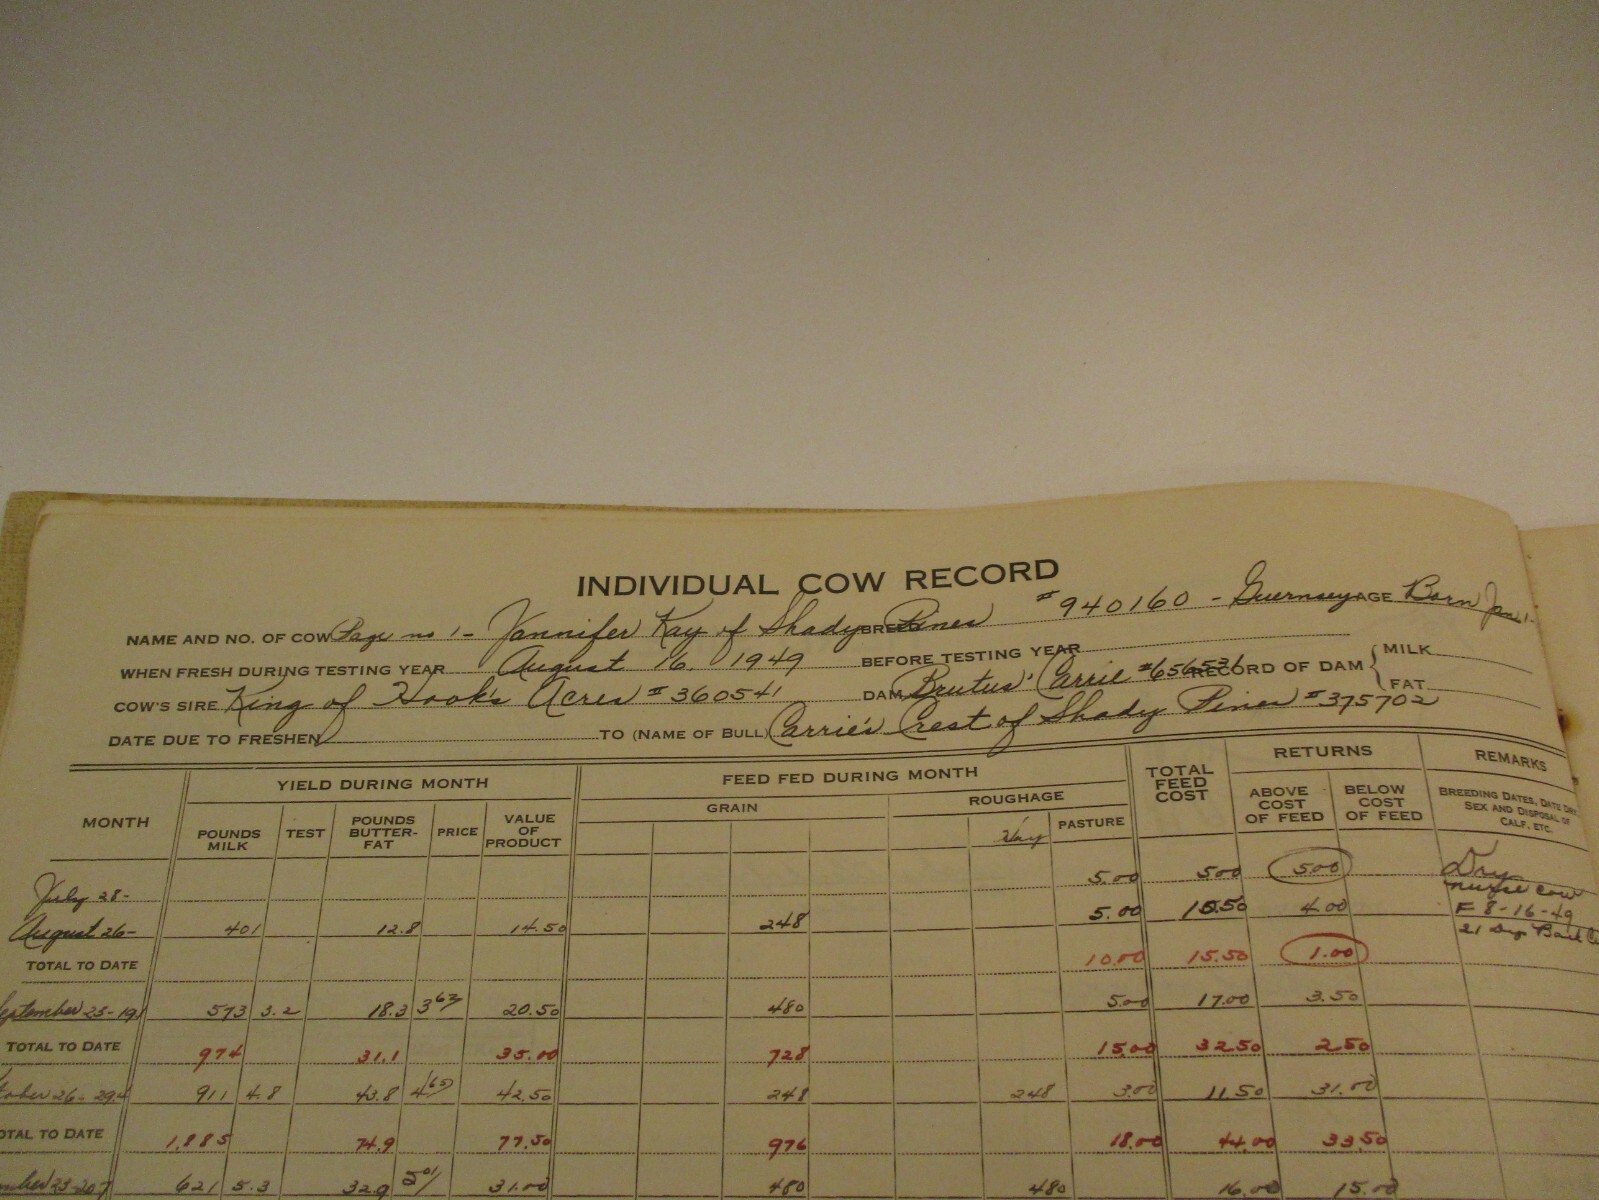 INDIVIDUAL COW RECORD
NAME AND NO. OF COW Page no 1 - Jannifer Kay of Shady Pines BREED #940160 - Guernsey AGE Born Jan. 1-
WHEN FRESH DURING TESTING YEAR August 16 1949 BEFORE TESTING YEAR
COW'S SIRE King of Hook's Acres #360541 DAM Brutus' Carrie #656531 RECORD OF DAM { MILK
FAT
DATE DUE TO FRESHEN TO (NAME OF BULL) Carrie's Crest of Shady Pines #375702
MONTH YIELD DURING MONTH FEED FED DURING MONTH TOTAL FEED COST RETURNS REMARKS
GRAIN ROUGHAGE
POUNDS MILK TEST POUNDS BUTTER-FAT PRICE VALUE OF PRODUCT Hay PASTURE ABOVE COST OF FEED BELOW COST OF FEED BREEDING DATES, DATE
SEX AND DISPOSAL OF
CALF, ETC.
July 28- 5.00 5.00 5.00 Dry
nurse cow
August 26- 401 12.8 14.50 248 5.00 4.00 F 8-16-49
21
TOTAL TO DATE 10.00 15.50 1.00
September 25-19 573 3.2 18.3 3 63 20.50 480 5.00 17.00 3.50
TOTAL TO DATE 974 31.1 35.00 728 15.00 32.50 2.50
tober 26- 911 4.8 43.8 4 65 42.50 248 248 3.00 11.50 31.00
OTAL TO DATE 1,885 74.9 77.50 976 18.00 44.00 33.50
mber 25-20 621 5.3 32.9 5 01 31.00 480 480 16.00 15.00